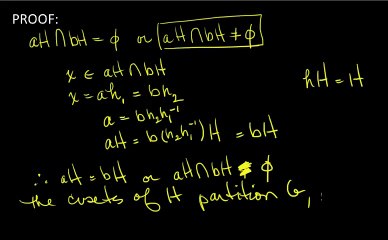 PROOF:
aH ∩ bH = ϕ or aH ∩ bH ≠ ϕ
x ∈ aH ∩ bH
hH = H
x = ah₁ = bh₂
a = bh₂h₁⁻¹
aH = b(h₂h₁⁻¹)H = bH
∴ aH = bH or aH ∩ bH = ϕ
the cosets of H partition G,